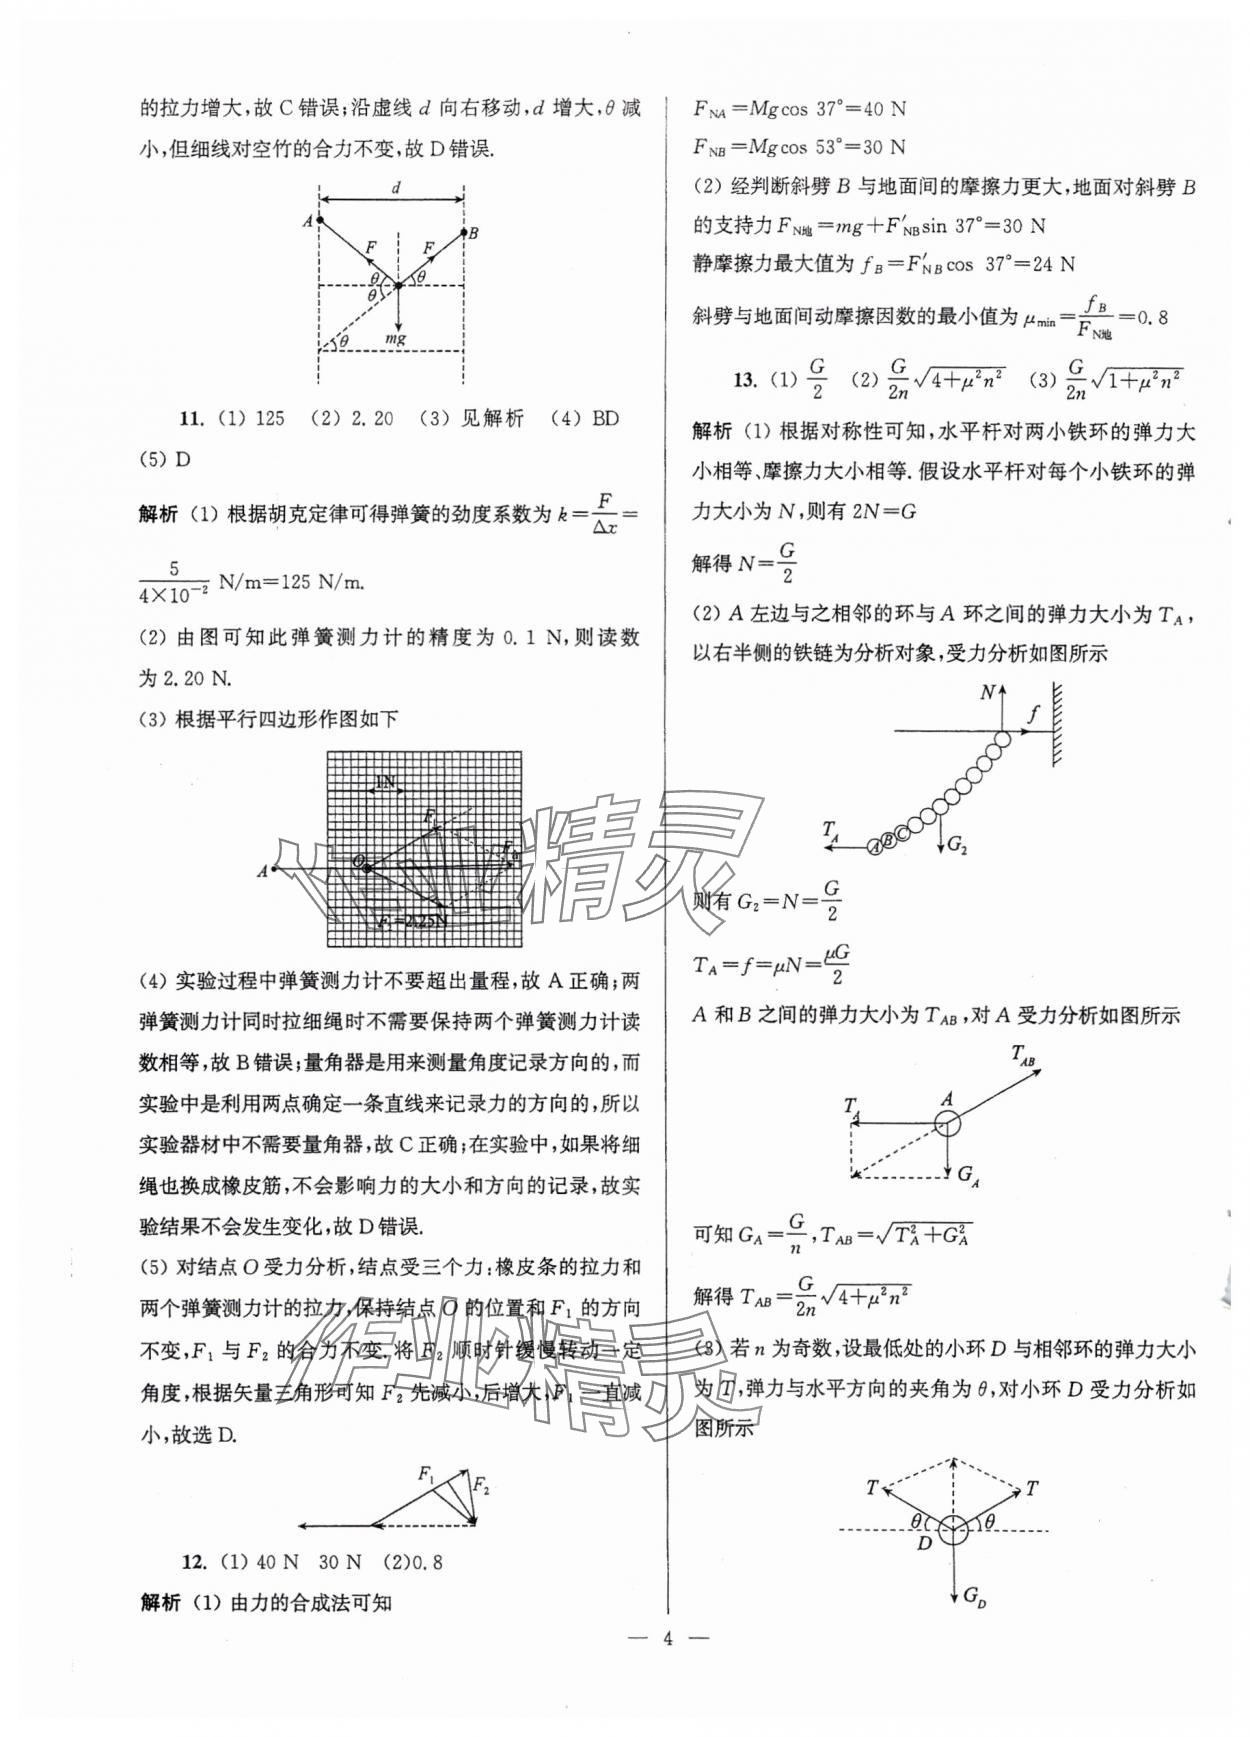 的拉力增大,故 C 错误;沿虚线 d 向右移动,d 增大,θ 减
小,但细线对空竹的合力不变,故 D 错误.
d
A
B
F
F
θ
θ
θ
θ
mg
11. (1) 125 (2) 2. 20 (3) 见解析 (4) BD
(5) D
解析 (1) 根据胡克定律可得弹簧的劲度系数为 k=F/Δx=
5/(4×10⁻²) N/m=125 N/m.
(2) 由图可知此弹簧测力计的精度为 0. 1 N,则读数
为 2. 20 N.
(3) 根据平行四边形作图如下
1N
A
O
F₂=2.25N
(4) 实验过程中弹簧测力计不要超出量程,故 A 正确;两
弹簧测力计同时拉细绳时不需要保持两个弹簧测力计读
数相等,故 B 错误;量角器是用来测量角度记录方向的,而
实验中是利用两点确定一条直线来记录力的方向的,所以
实验器材中不需要量角器,故 C 正确;在实验中,如果将细
绳也换成橡皮筋,不会影响力的大小和方向的记录,故实
验结果不会发生变化,故 D 错误.
(5) 对结点 O 受力分析,结点受三个力:橡皮条的拉力和
两个弹簧测力计的拉力,保持结点 O 的位置和 F₁ 的方向
不变,F₁ 与 F₂ 的合力不变. 将 F₂ 顺时针缓慢转动一定
角度,根据矢量三角形可知 F₂ 先减小,后增大,F₁ 一直减
小,故选 D.
F₁
F₂
12. (1) 40 N 30 N (2)0. 8
解析 (1) 由力的合成法可知
F_NA=Mgcos 37°=40 N
F_NB=Mgcos 53°=30 N
(2) 经判断斜劈 B 与地面间的摩擦力更大,地面对斜劈 B
的支持力 F_N地=mg+F′_NB sin 37°=30 N
静摩擦力最大值为 f_B=F′_NB cos 37°=24 N
斜劈与地面间动摩擦因数的最小值为 μ_min=f_B/F_N地=0. 8
13. (1) G/2 (2) G/2n √(4+μ²n²) (3) G/2n √(1+μ²n²)
解析 (1) 根据对称性可知,水平杆对两小铁环的弹力大
小相等、摩擦力大小相等. 假设水平杆对每个小铁环的弹
力大小为 N,则有 2N=G
解得 N=G/2
(2) A 左边与之相邻的环与 A 环之间的弹力大小为 T_A,
以右半侧的铁链为分析对象,受力分析如图所示
N
f
T_A
A
B
C
G₂
则有 G₂=N=G/2
T_A=f=μN=μG/2
A 和 B 之间的弹力大小为 T_AB,对 A 受力分析如图所示
T_AB
A
T_A
G_A
可知 G_A=G/n,T_AB=√(T_A²+G_A²)
解得 T_AB=G/2n √(4+μ²n²)
(3) 若 n 为奇数,设最低处的小环 D 与相邻环的弹力大小
为 T,弹力与水平方向的夹角为 θ,对小环 D 受力分析如
图所示
T
T
θ
θ
D
G_D
— 4 —
作业精灵
作业精灵